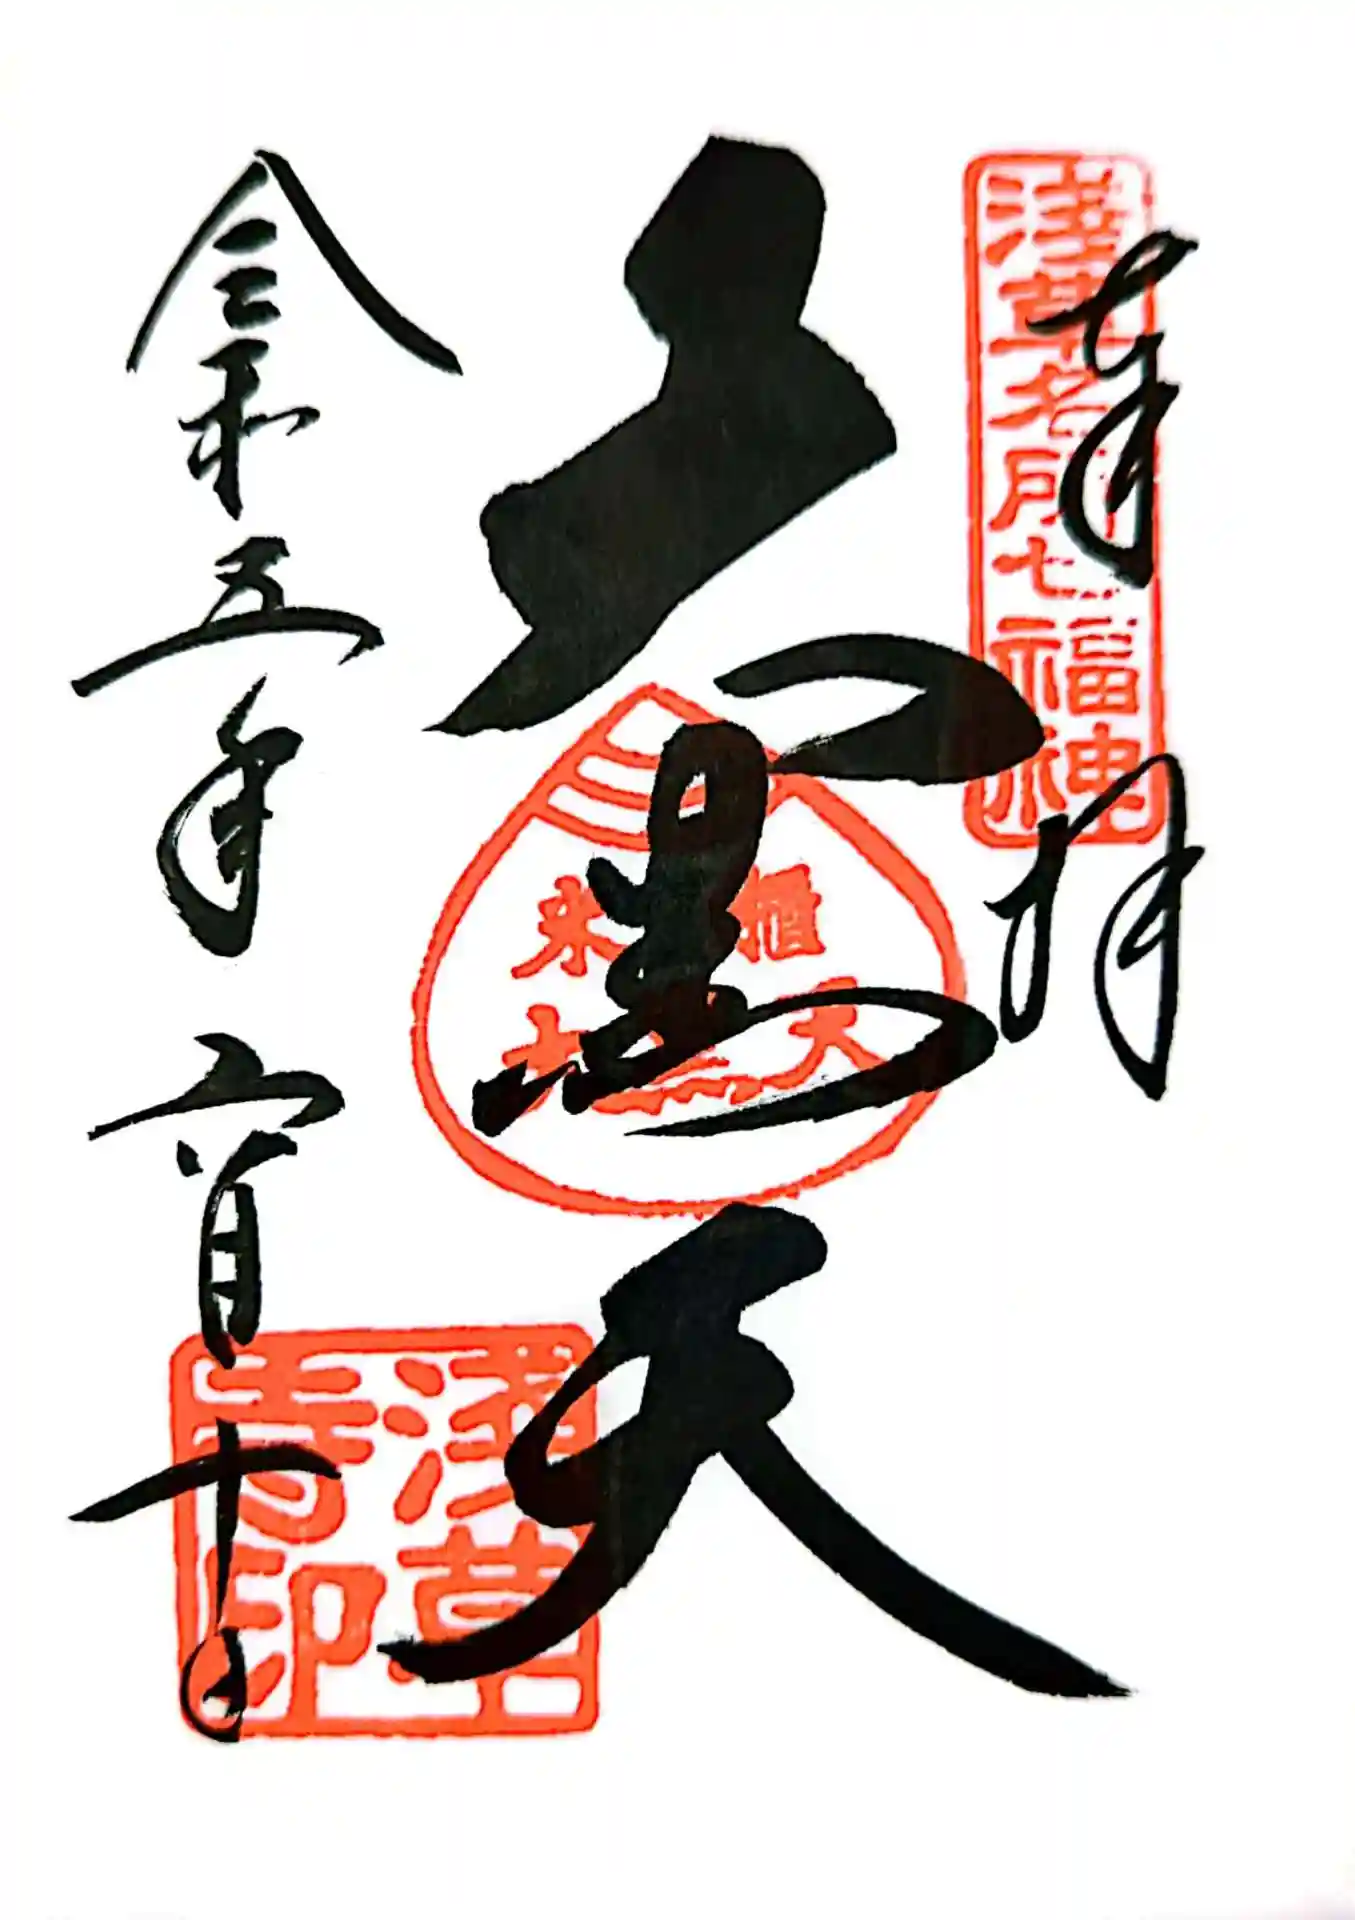 奉拝
浅草名所七福神
大黒天
米櫃
大黒天
令和五年六月十日
浅草
寺印